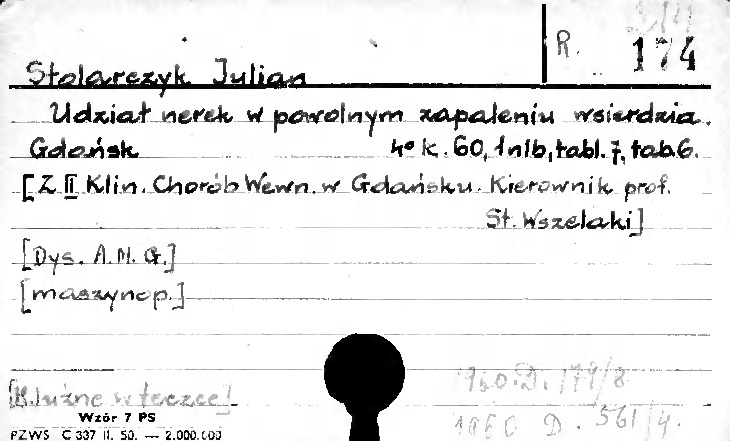 R. 174
Stolarczyk Julian
Udział nerek w powolnym zapaleniu wsierdzia.
Gdańsk 4° k. 60, 1 nlb, tabl. 7, tab. 6.
[Z II Klin. Chorób Wewn. w Gdańsku. Kierownik prof.
St. Wszelaki]
[Dys. A. M. G.]
[maszynop.]
[K. luźne w teczce]
1960. D. 179/8
1960 D. 561/4.
Wzór 7 PS
PZWS C 337 II. 50. — 2.000.000